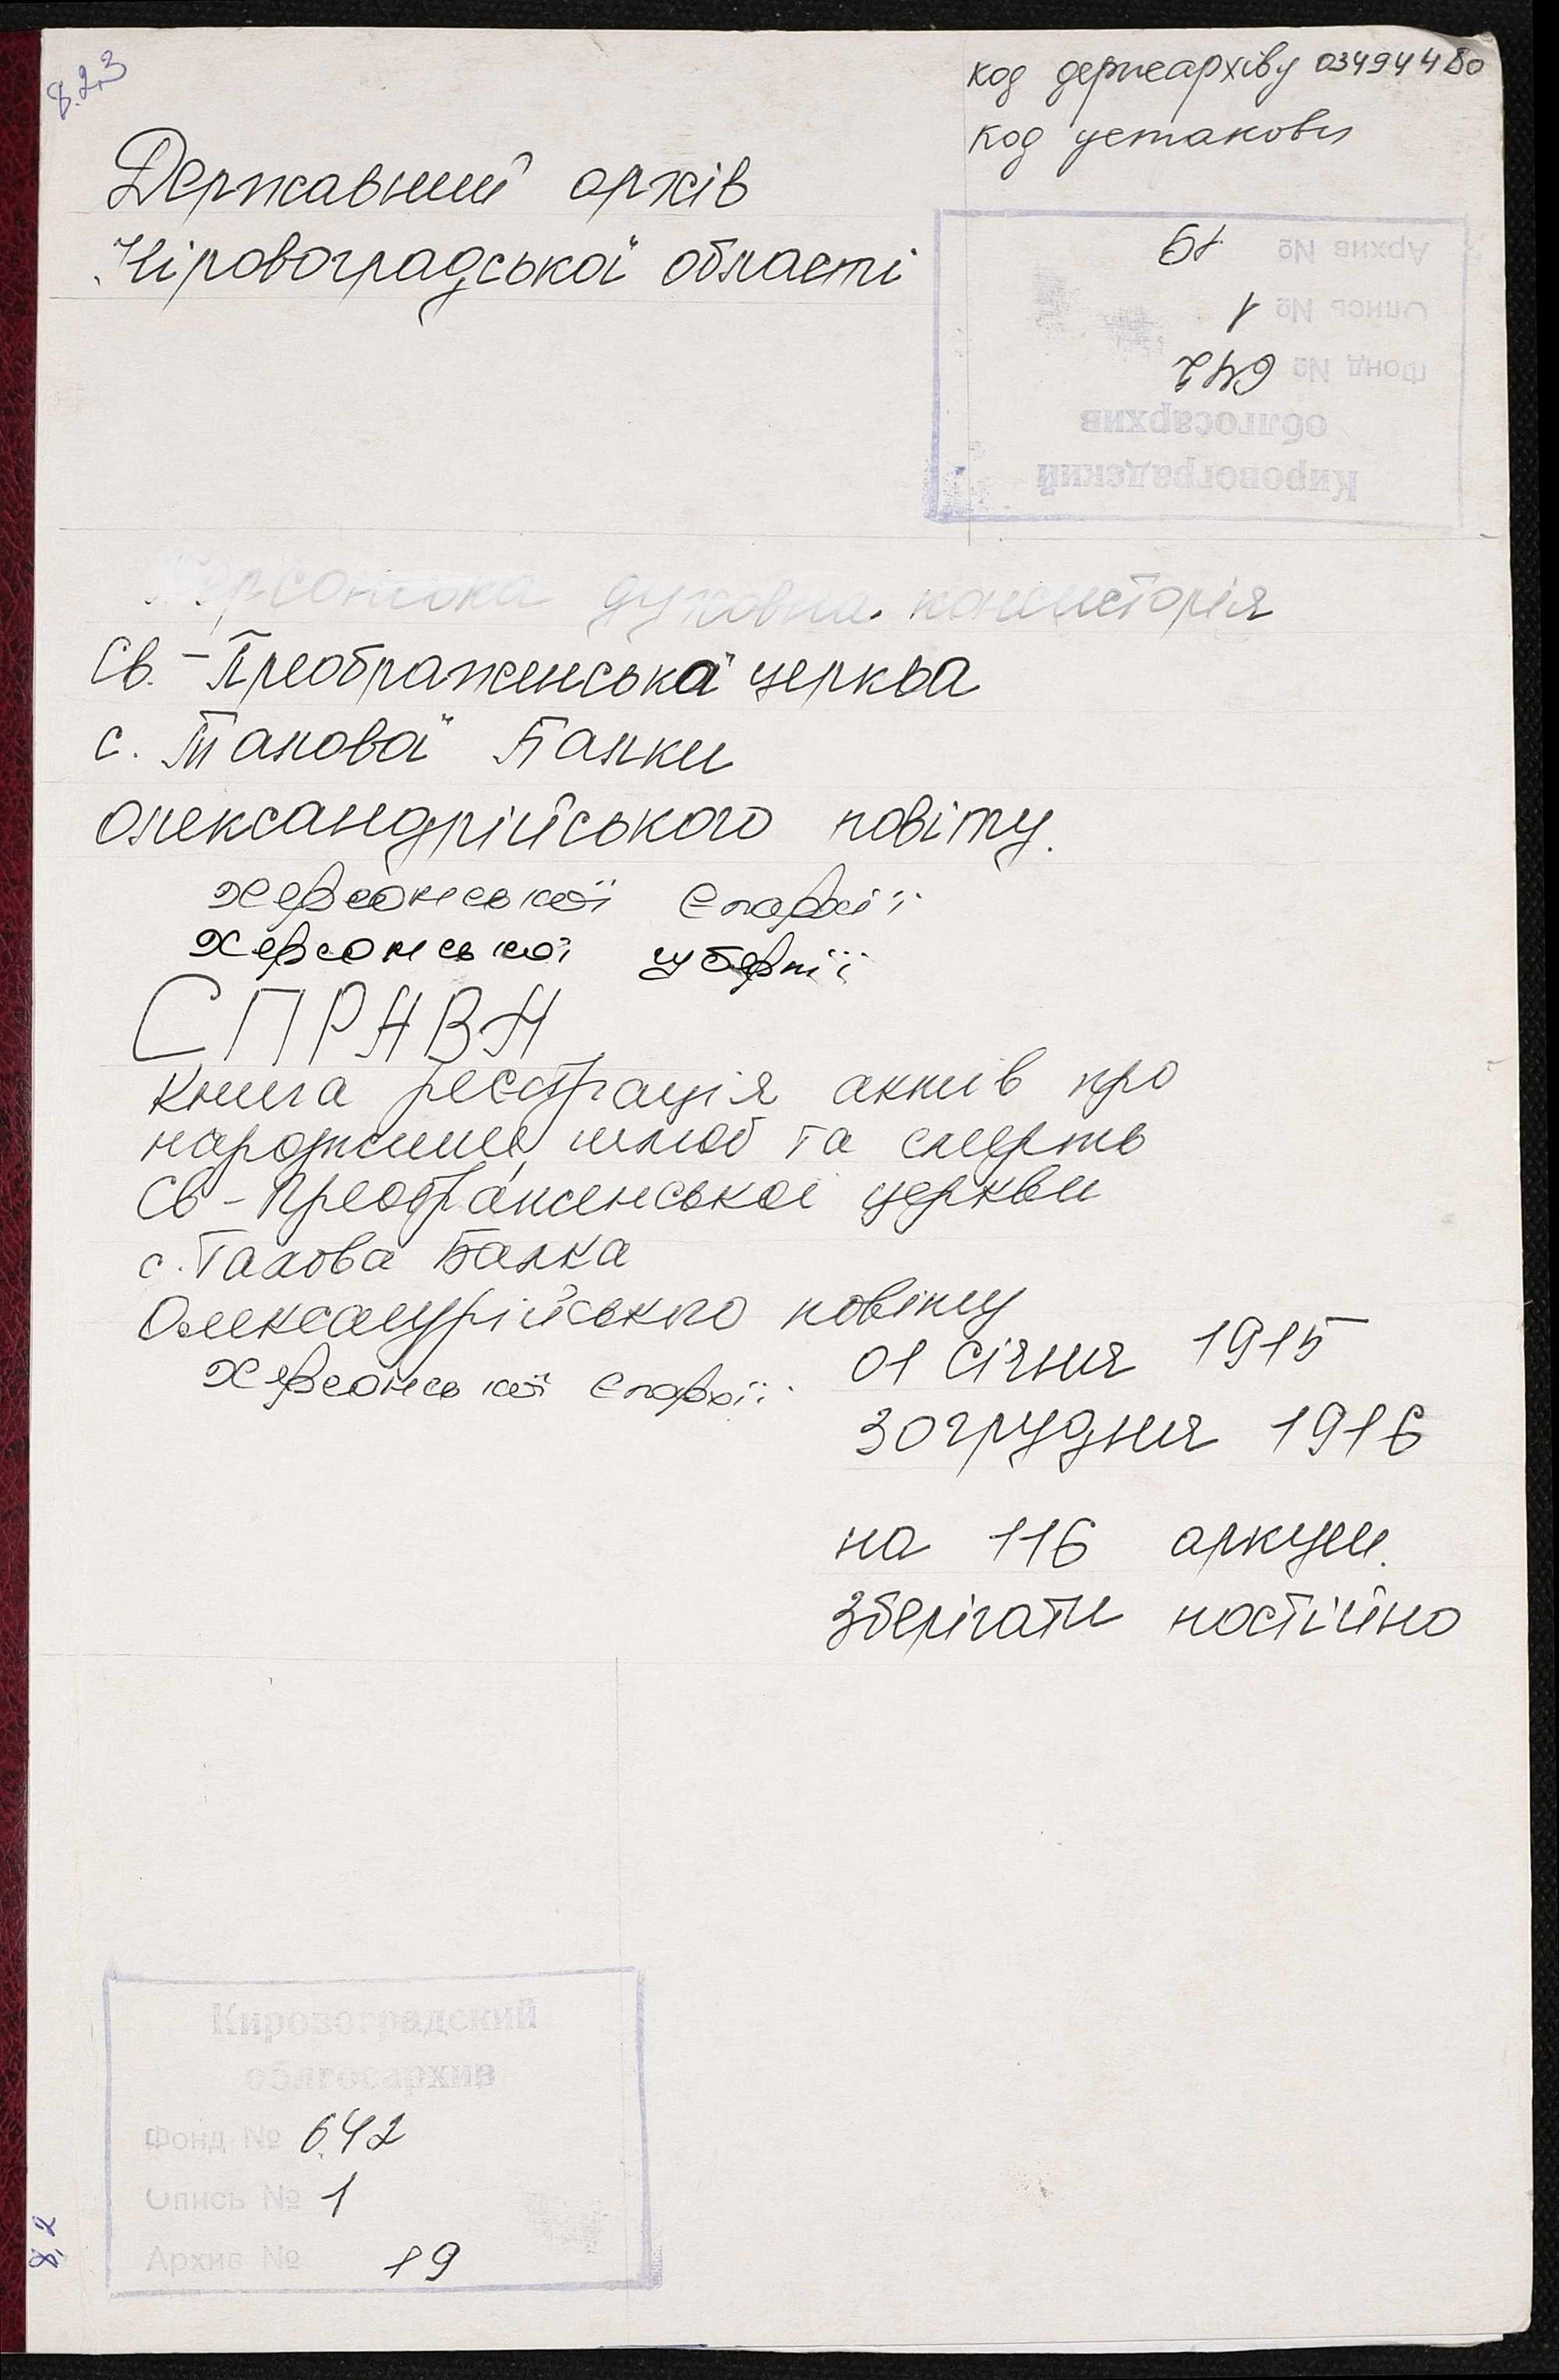 8.2,3
код держархіву 03494480
код установи
Державний архів
Кіровоградської області
Архив № 19
Опись № 1
Фонд № 642
облгосархив
Кировоградский
Херсонська духовна консисторія
Св.-Преображенська церква
с. Талової Балки
Олександрійського повіту.
Херсонської Єпархії
Херсонської губернії
СПРАВА
Книга реєстрація актів про
народження, шлюб та смерть
Св-Преображенської церкви
с. Талова Балка
Олександрійського повіту
01 січня 1915
Херсонської Єпархії
30 грудня 1916
на 116 аркуш.
Зберігати постійно
Кировоградский
облгосархив
Фонд № 642
Опись № 1
Архив № 19
8,2